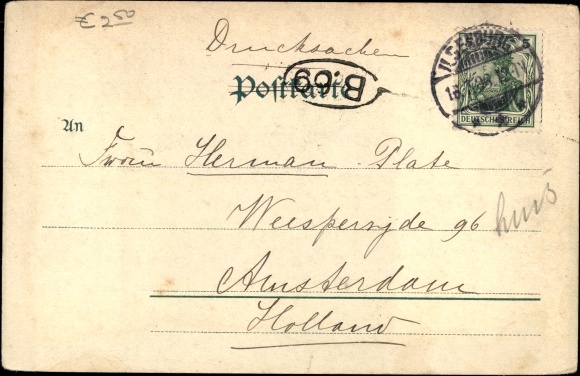 € 2.50
Drucksachen
Postkarte
B.69
ILSENBURG
5
DEUTSCHES REICH
An
Frau Herman Plate
Weesperzyde 96
huis
Amsterdam
Holland